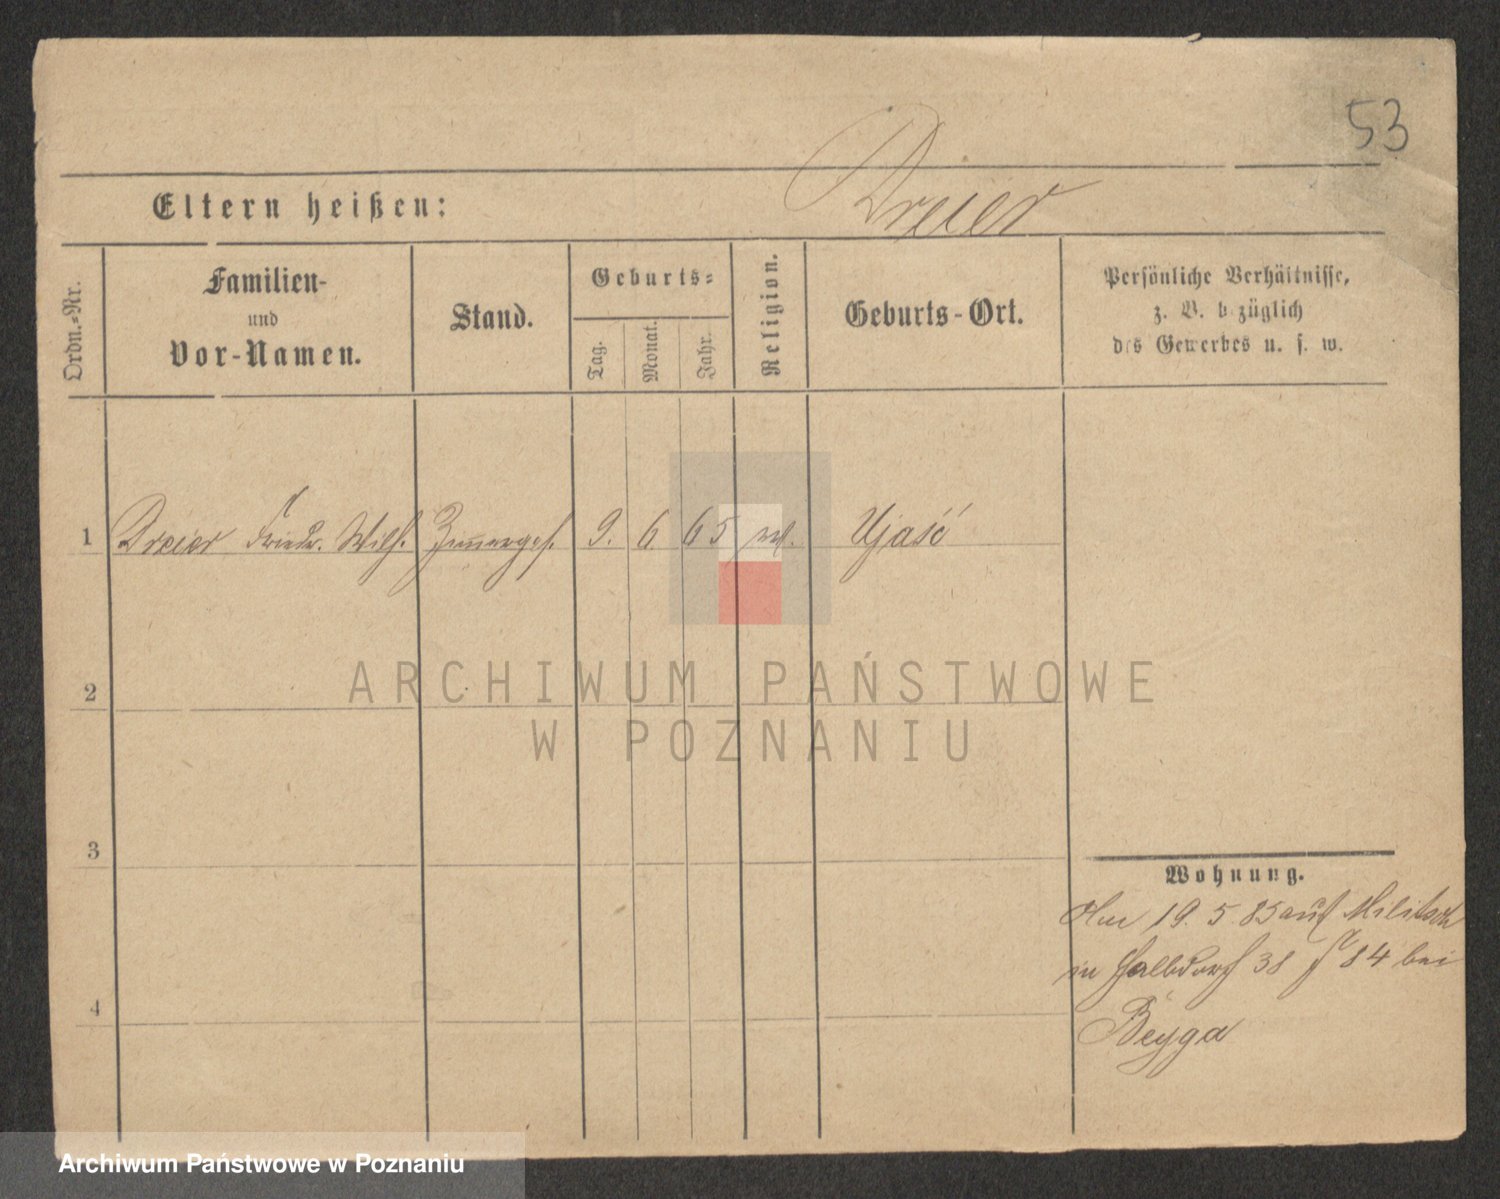 53
Dreier
Eltern heißen:
Ordn.-Nr.
Familien-
und
Vor-Namen.
Stand.
Geburts-
Tag.
Monat.
Jahr.
Religion.
Geburts-Ort.
Persönliche Verhältnisse,
z. B. bezüglich
des Gewerbes u. s. w.
1 Dreier Friedr. Wilh. Zimmerges. 9. 6. 65 Ujaść
2
3
4
Wohnung.
19. 5. 85 auf Militsch
in Halbdorf 38 84 bei
Beyga
ARCHIWUM PAŃSTWOWE
W POZNANIU
Archiwum Państwowe w Poznaniu